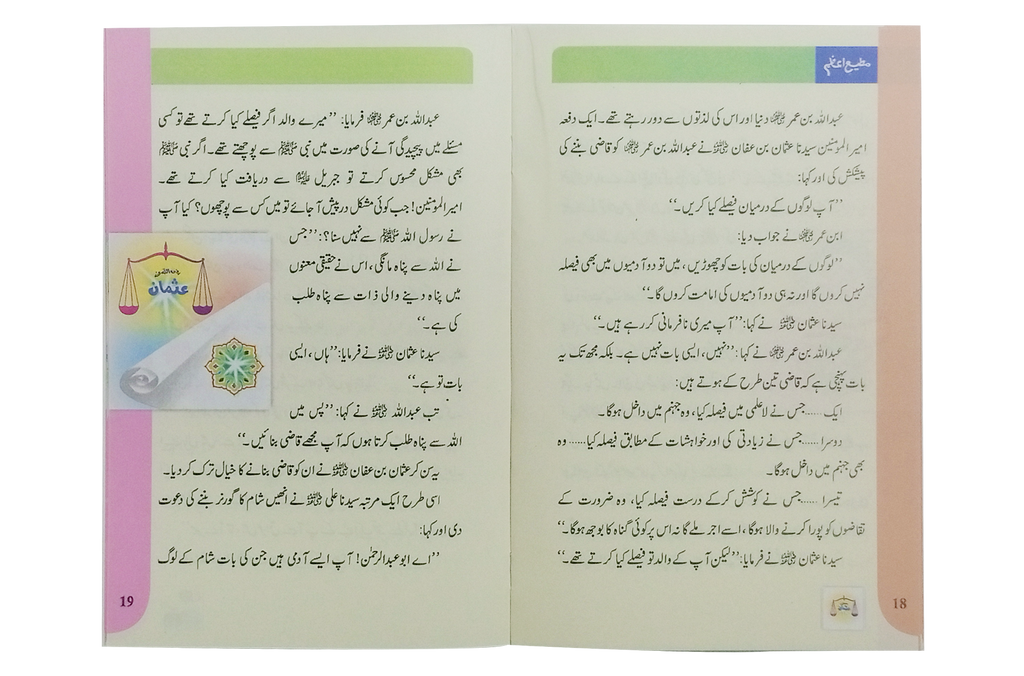 مطیع اعظم
عبداللہ بن عمر رضی اللہ عنہما دنیا اور اس کی لذتوں سے دور رہتے تھے۔ ایک دفعہ
امیر المؤمنین سیدنا عثمان بن عفان رضی اللہ عنہ نے عبداللہ بن عمر رضی اللہ عنہما کو قاضی بننے کی
پیشکش کی اور کہا:
’’آپ لوگوں کے درمیان فیصلے کیا کریں۔‘‘
ابن عمر رضی اللہ عنہما نے جواب دیا:
’’لوگوں کے درمیان کی بات کو چھوڑیں، میں تو دو آدمیوں میں بھی فیصلہ
نہیں کروں گا اور نہ ہی دو آدمیوں کی امامت کروں گا۔‘‘
سیدنا عثمان رضی اللہ عنہ نے کہا: ’’آپ میری نافرمانی کر رہے ہیں۔‘‘
عبداللہ بن عمر رضی اللہ عنہما نے کہا: ’’نہیں، ایسی بات نہیں ہے۔ بلکہ مجھ تک یہ
بات پہنچی ہے کہ قاضی تین طرح کے ہوتے ہیں:
ایک ...... جس نے لاعلمی میں فیصلہ کیا، وہ جہنم میں داخل ہوگا۔
دوسرا ...... جس نے زیادتی کی اور خواہشات کے مطابق فیصلہ کیا ...... وہ
بھی جہنم میں داخل ہوگا۔
تیسرا ...... جس نے کوشش کرکے درست فیصلہ کیا، وہ ضرورت کے
تقاضوں کو پورا کرنے والا ہوگا، اسے اجر ملے گا نہ اس پر کوئی گناہ کا بوجھ ہوگا۔‘‘
سیدنا عثمان رضی اللہ عنہ نے فرمایا: ’’لیکن آپ کے والد تو فیصلے کیا کرتے تھے۔‘‘
18
عبداللہ بن عمر رضی اللہ عنہما فرمایا: ’’میرے والد اگر فیصلے کیا کرتے تھے تو کسی
مسئلے میں پیچیدگی آنے کی صورت میں نبی ﷺ سے پوچھتے تھے۔ اگر نبی ﷺ
بھی مشکل محسوس کرتے تو جبریل علیہ السلام سے دریافت کیا کرتے تھے۔
امیر المؤمنین! جب کوئی مشکل درپیش آ جائے تو میں کس سے پوچھوں؟ کیا آپ
نے رسول اللہ ﷺ سے نہیں سنا؟: ’’جس
نے اللہ سے پناہ مانگی، اس نے حقیقی معنوں
میں پناہ دینے والی ذات سے پناہ طلب
کی ہے۔‘‘
سیدنا عثمان رضی اللہ عنہ نے فرمایا: ’’ہاں، ایسی
بات تو ہے۔‘‘
تب عبداللہ رضی اللہ عنہ نے کہا: ’’پس میں
اللہ سے پناہ طلب کرتا ہوں کہ آپ مجھے قاضی بنائیں۔‘‘
یہ سن کر عثمان بن عفان رضی اللہ عنہ نے ان کو قاضی بنانے کا خیال ترک کر دیا۔
اسی طرح ایک مرتبہ سیدنا علی رضی اللہ عنہ نے انھیں شام کا گورنر بننے کی دعوت
دی اور کہا:
’’اے ابو عبدالرحمٰن! آپ ایسے آدمی ہیں جن کی بات شام کے لوگ
عثمان
19